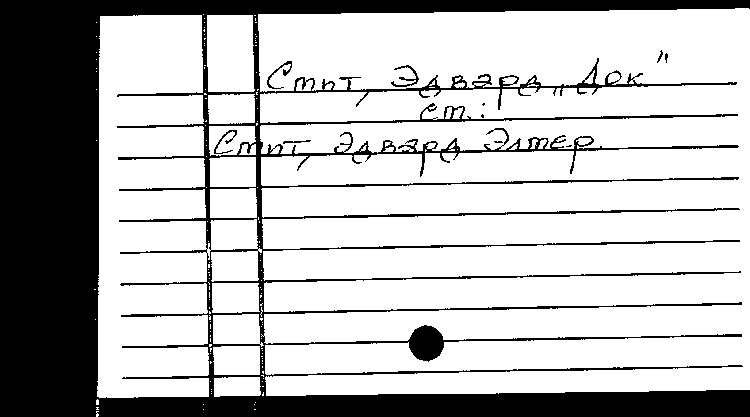 Смит, Эдвард „Док"
см.:
Смит, Эдвард Элмер